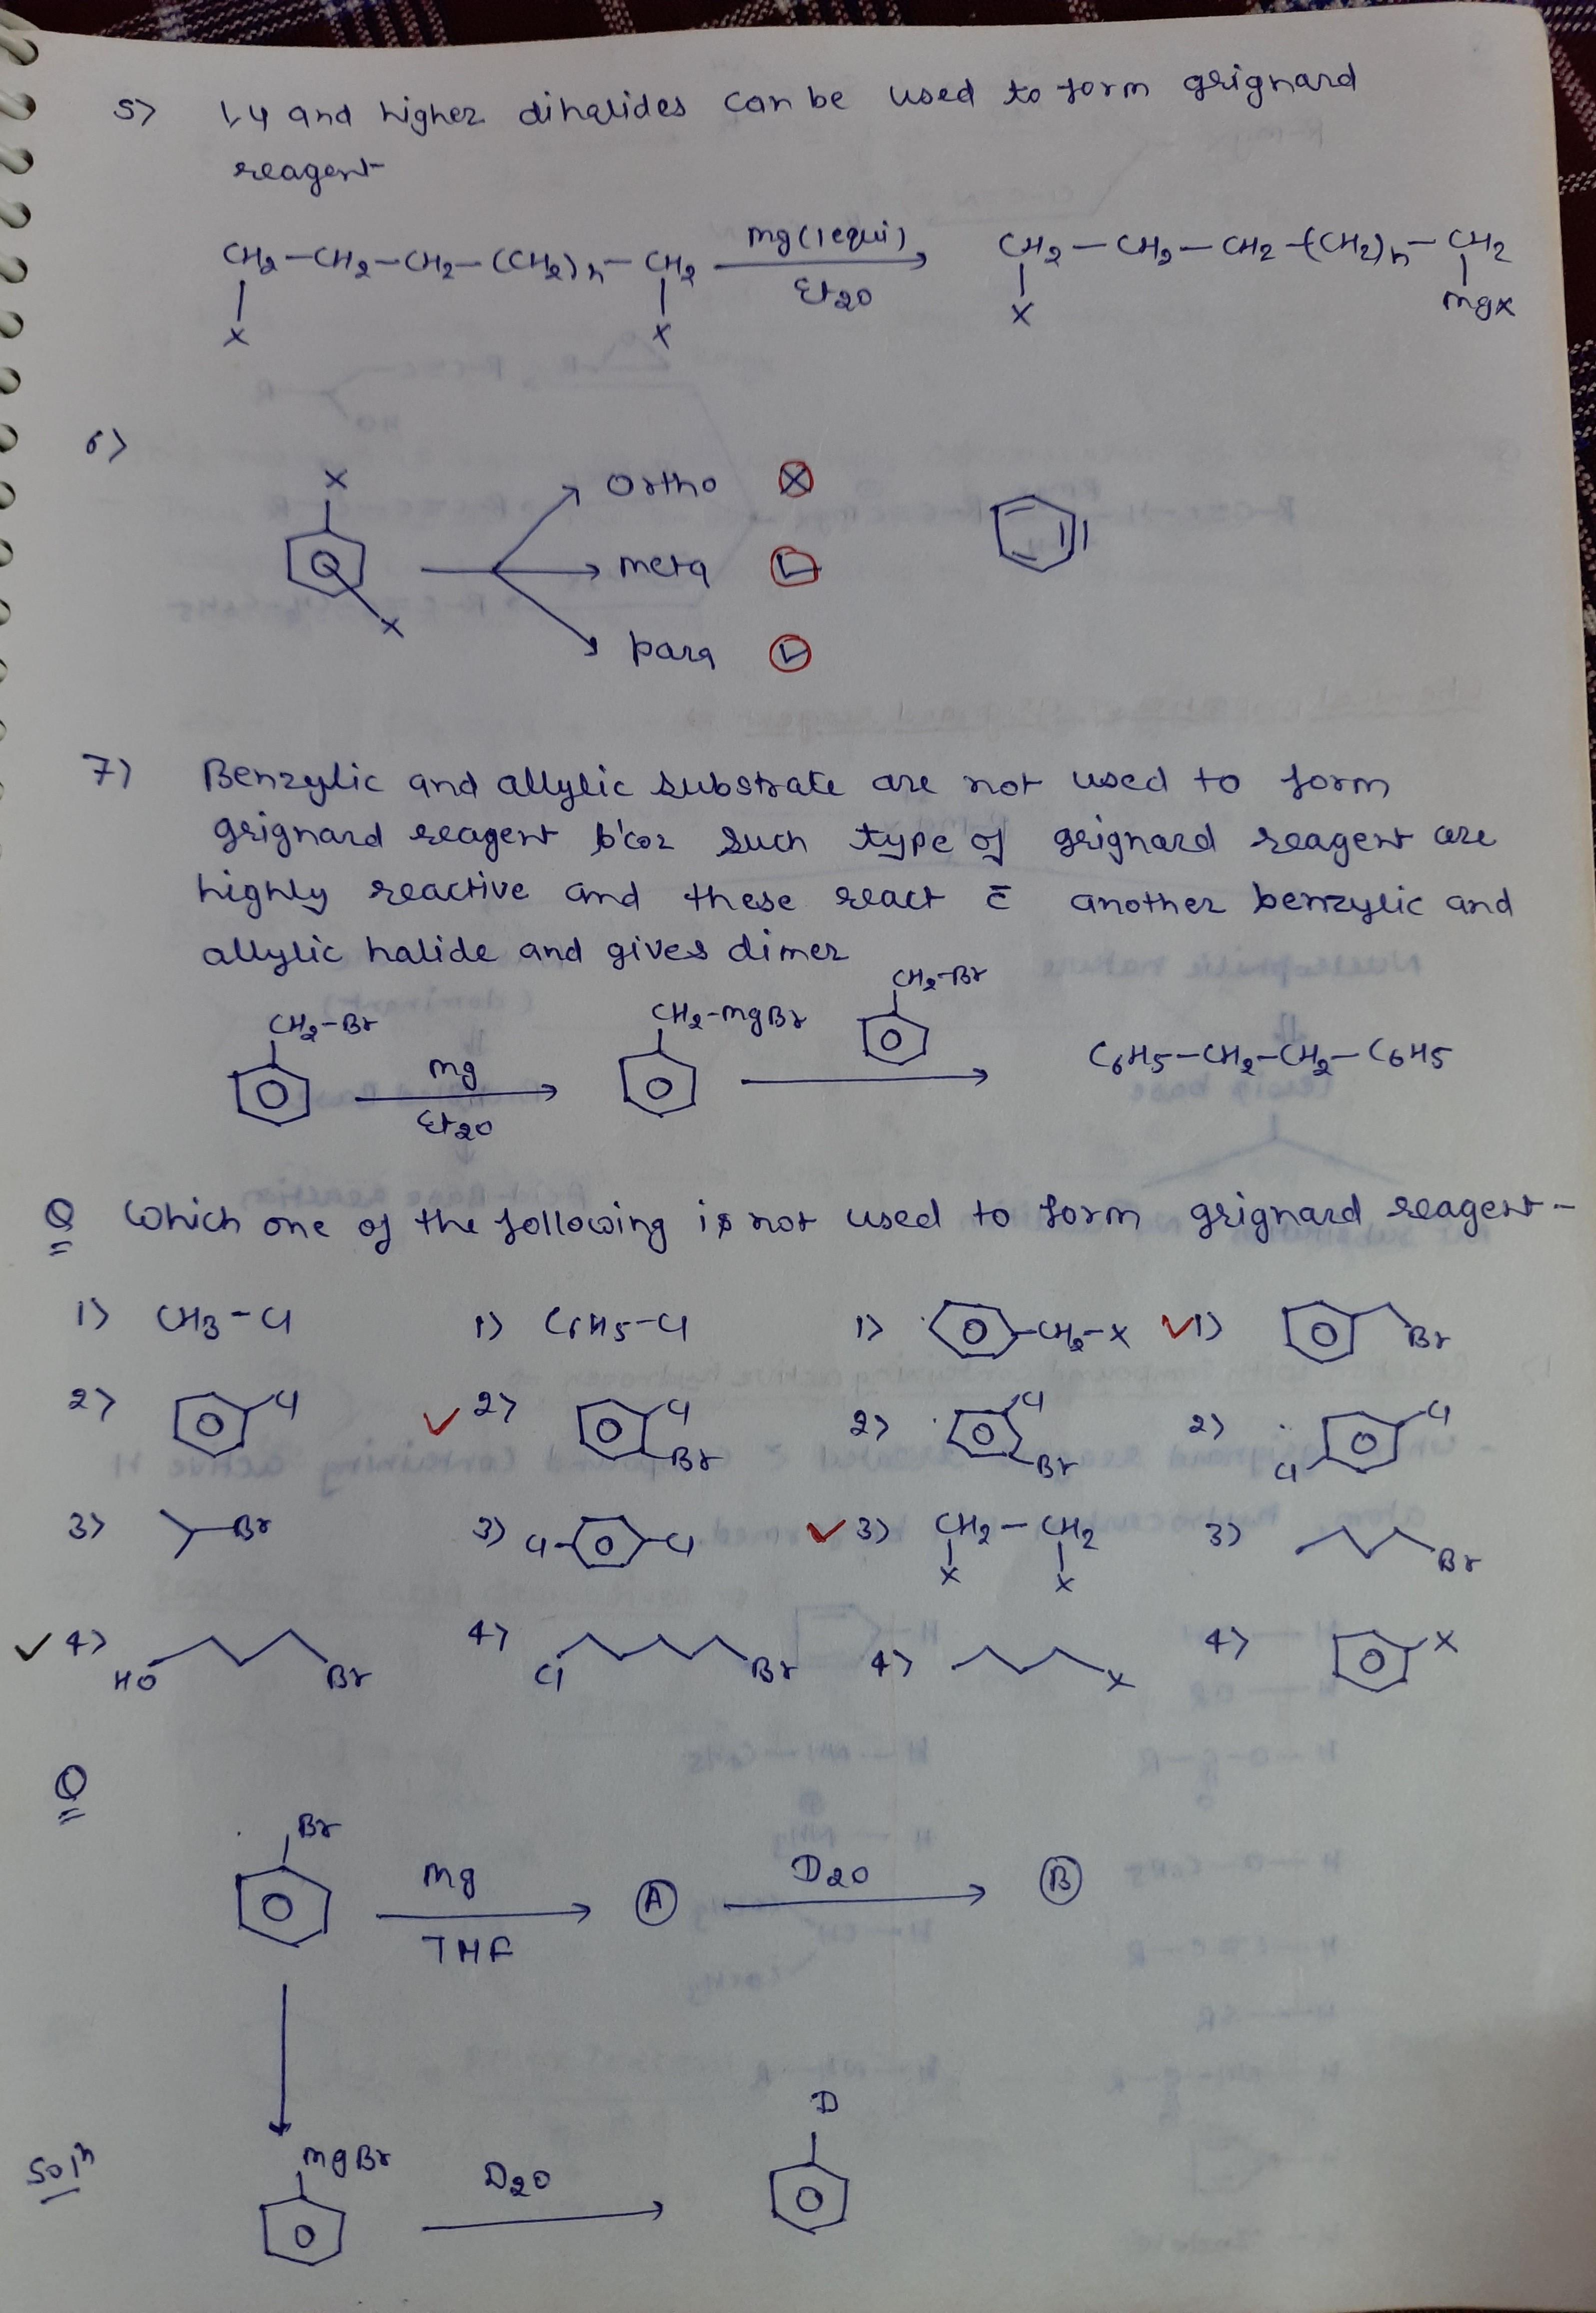 5> 1,4 and higher dihalides can be used to form grignard
reagent
CH2-CH2-CH2-(CH2)n-CH2 mg(1equi) CH2-CH2-CH2-(CH2)n-CH2
X X Et2O X mgx
6>
X
X
Ortho X
meta
para
7> Benzylic and allylic substrate are not used to form
grignard reagent b'coz such type of grignard reagent are
highly reactive and these react c̄ another benzylic and
allylic halide and gives dimer
CH2-Br
CH2-Br mg CH2-mgBr C6H5-CH2-CH2-C6H5
Et2O
Q Which one of the following is not used to form grignard reagent-
1> CH3-Cl 1> C6H5-Cl 1> CH2-X ✓1> Br
2> Cl ✓2> Cl Br 2> Cl Br 2> Cl Cl
3> Br 3> Cl Cl ✓3> CH2-CH2 3> Br
X X
✓4> HO Br 4> Cl Br 4> X 4> X
Q
Br
mg A D2O B
THF
Soln
mgBr D2O D